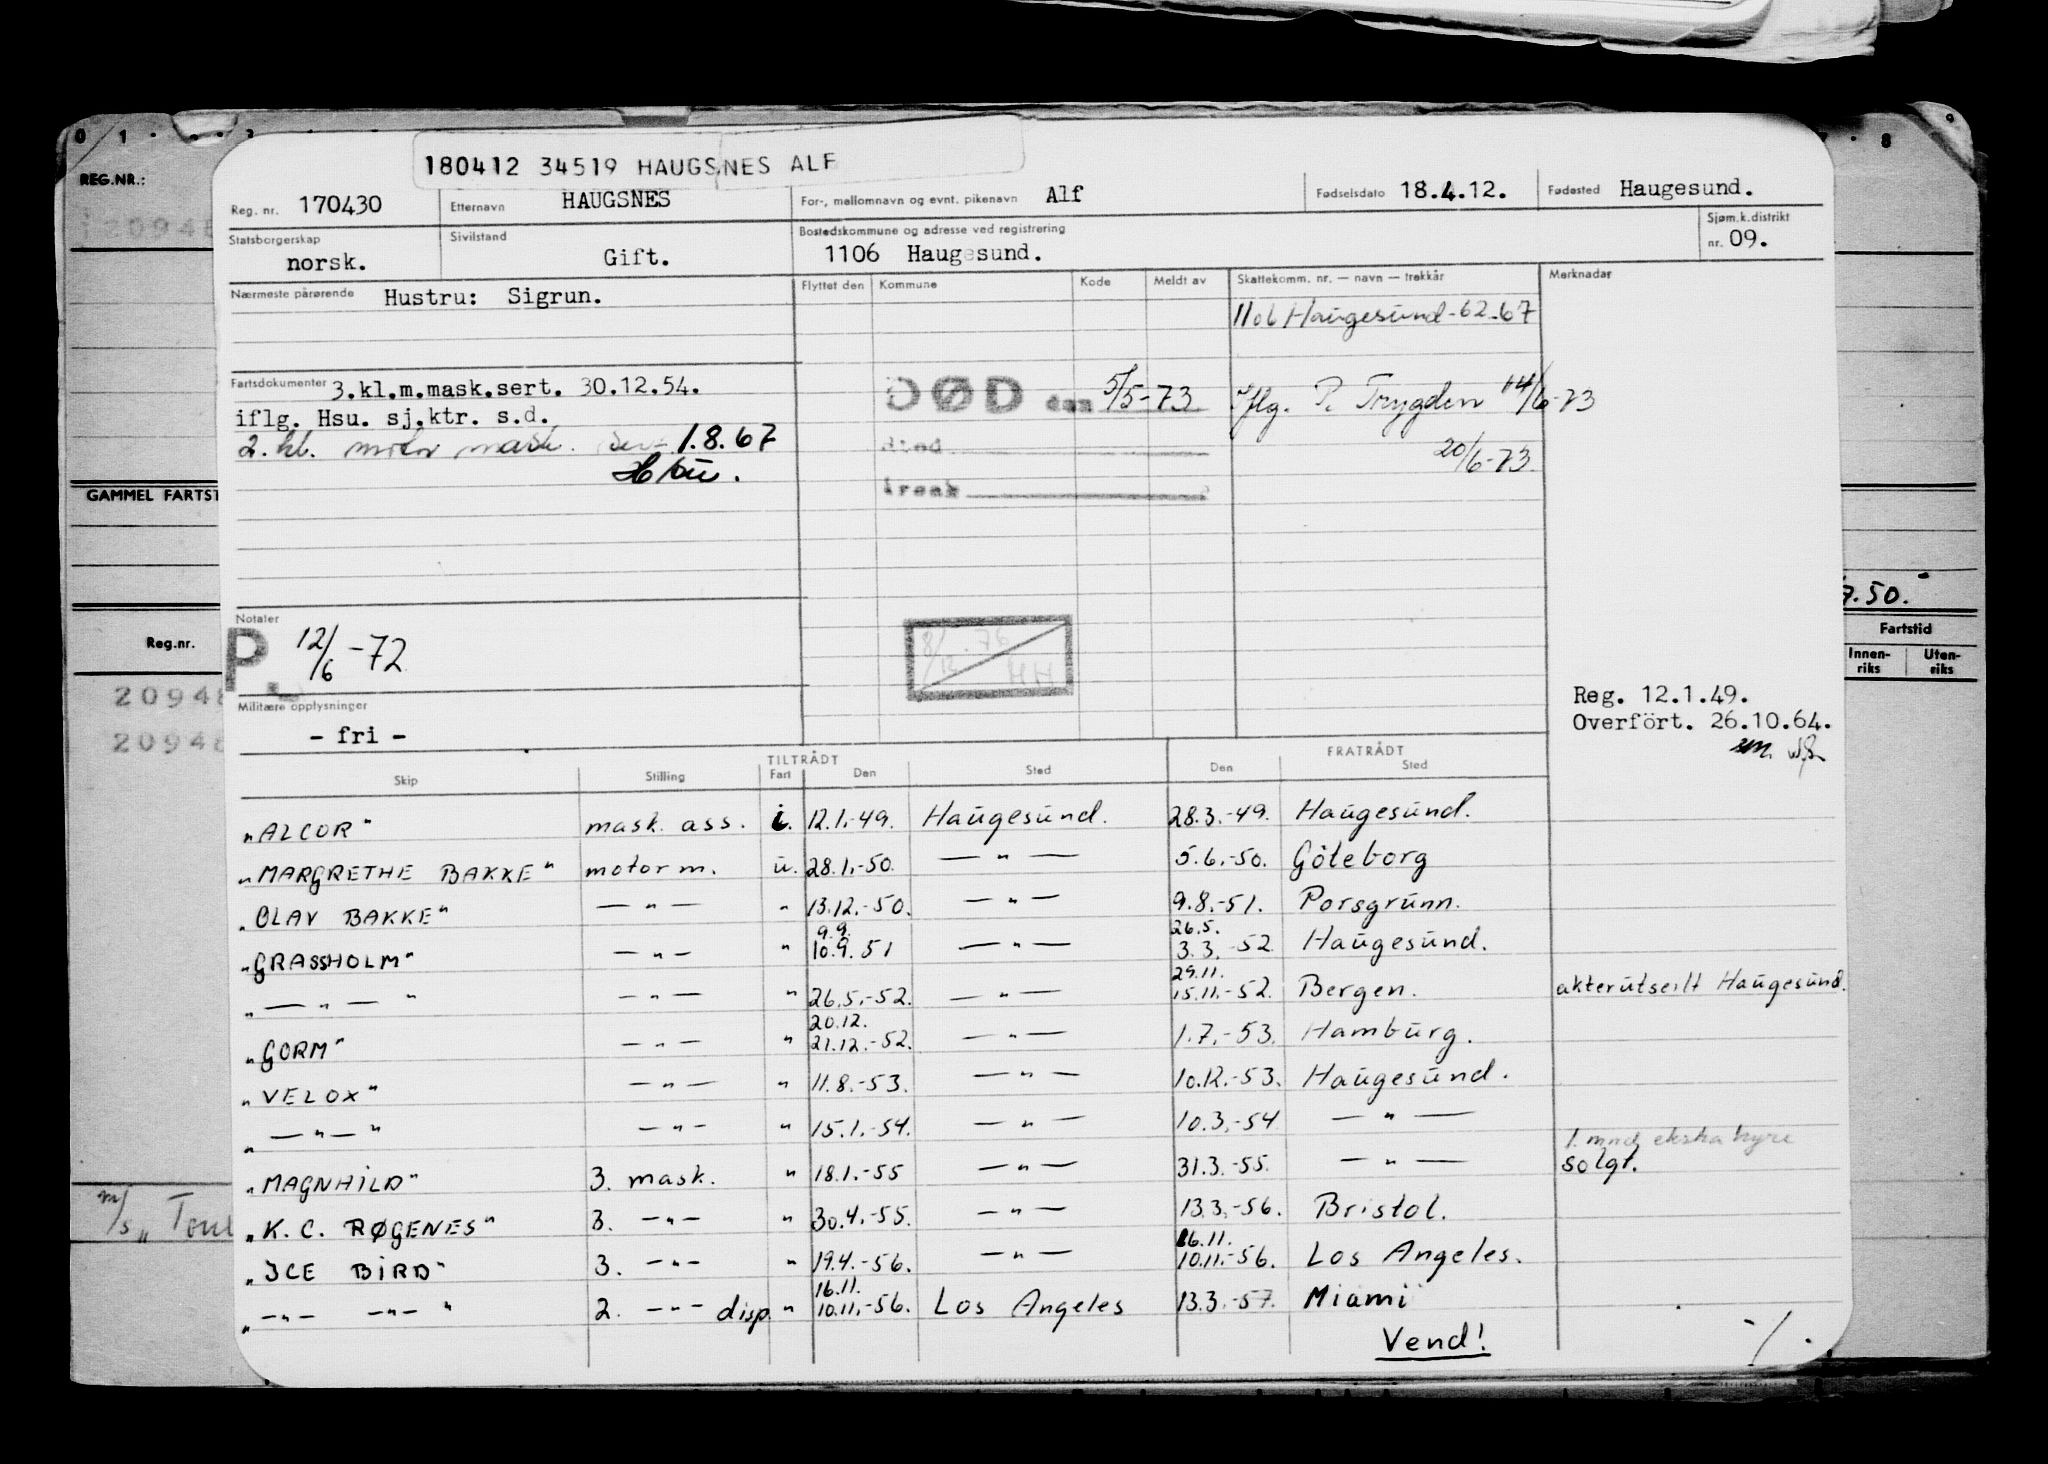 180412 34519 HAUGSNES ALF
REG.NR.:
Reg. nr. 170430 Etternavn HAUGSNES For-, mellomnavn og evnt. pikenavn Alf Fødselsdato 18.4.12. Fødested Haugesund.
Statsborgerskap norsk. Sivilstand Gift. Bostedskommune og adresse ved registrering 1106 Haugesund. Sjøm.k.distrikt nr. 09.
Nærmeste pårørende Hustru: Sigrun. Flyttet den Kommune Kode Meldt av Skattekomm. nr. — navn — trekkår Merknader
1106 Haugesund - 62-67
Fartsdokumenter 3.kl.m.mask.sert. 30.12.54. DØD den 5/5-73 iflg. P. Trygden 14/6-73
iflg. Hsu. sj.ktr. s.d.
2. kl. motor mask. sert 1.8.67 Sted 20/6-73
Hsu. Årsak
GAMMEL FARTST
7.50.
Notater
P. 12/6-72
8/12.76
HH
Reg.nr. Fartstid
Innen-riks Uten-riks
Reg. 12.1.49.
Overført. 26.10.64.
Militære opplysninger
- fri -
TILTRÅDT FRATRÅDT
Skip Stilling Fart Den Sted Den Sted
"ALCOR" mask. ass. i. 12.1.-49. Haugesund. 28.3.-49. Haugesund.
"MARGRETHE BAKKE" motor m. u. 28.1.-50. — " — 5.6.-50. Göteborg
"OLAV BAKKE" — " — " 13.12.-50. — " — 9.8.-51. Porsgrunn.
9.9. 26.5.
"GRASSHOLM" — " — " 10.9.51 — " — 3.3.-52 Haugesund.
29.11.
"— " — " — " — " 26.5.-52. — " — 15.11.-52. Bergen. akterutseilt Haugesund.
20.12.
"GORM" — " — " 21.12.-52. — " — 1.7.-53. Hamburg.
"VELOX" — " — " 11.8.-53. — " — 10.12.-53. Haugesund.
"— " — " — " — " 15.1.-54. — " — 10.3.-54 — " —
1. mnd ekstra hyre
"MAGNHILD" 3. mask. " 18.1.-55 — " — 31.3.-55. — " — solgt.
"K. C. RØGENES" 3. — " — " 30.4.-55. — " — 13.3.-56. Bristol.
16.11.
"ICE BIRD" 3. — " — " 19.4.-56. — " — 10.11.-56. Los Angeles.
16.11.
"— " — — " — " 2. — " — disp. " 10.11.-56. Los Angeles 13.3.-57. Miami
Vend!